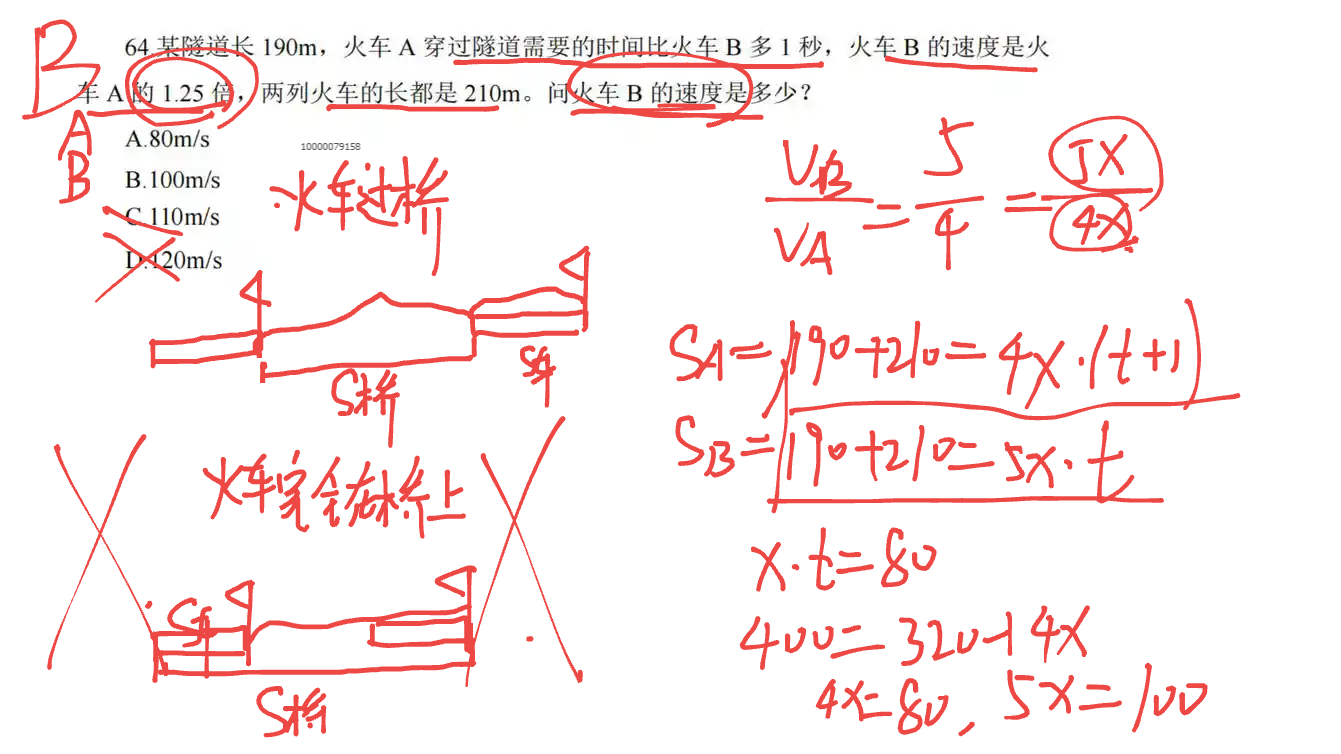 B
64.某隧道长 190m，火车 A 穿过隧道需要的时间比火车 B 多 1 秒，火车 B 的速度是火
车 A 的 1.25 倍，两列火车的长都是 210m。问火车 B 的速度是多少？
A
B
A.80m/s
B.100m/s
C.110m/s
D.120m/s
10000079158
火车过桥
S桥
S车
火车完全在桥上
S车
S桥
VB/VA=5/4=5X/4X
SA=190+210=4X·(t+1)
SB=190+210=5X·t
X·t=80
400=320+4X
4X=80, 5X=100